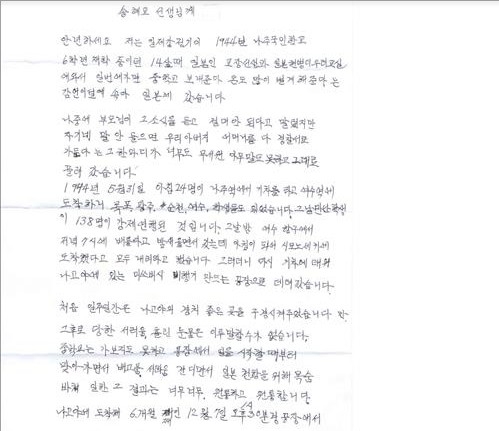 송혜교 선생님께
안녕하세요 저는 일제강점기에 1944년 나주국민학교
6학년 재학 중이던 14살때 일본인 교장선생과 일본헌병이 우리교실
에와서 일본에가면 중학교 보내준다 돈도 많이 벌게해준다는
감언이설에 속아 일본에 갔습니다
나중에 부모님이 그소식을 듣고 절대안된다고 말렸지만
자기네 말 안 들으면 우리아버지 어머니를 다 경찰서로
가둔다는 그한마디가 너무도 무서워 아무말도 못하고 그대로
끌려 갔습니다
1944년 5월31일 아침 24명이 나주역에서 기차를 타고 여수역에
도착하니 목포, 광주, 순천, 여수, 학생들도 와있습니다. 그날
이 138명이 강제연행된 것입니다. 그날밤 여수 항구에서
저녁 7시에 배를타고 밤새 울면서 갔는데 아침이 되어 시모노세키에
도착했다고 모두 내리라고 했습니다 그러더니 다시 기차에 태워
나고야에 있는 미쓰비시 비행기 만드는 공장으로 데려갔습니다
처음 일주일간은 나고야의 경치 좋은 곳을 구경시켜주었습니다
그후로 당한 서러움, 흘린 눈물은 이루말할수가 없습니다.
중학교는 가보지도 못하고 공장에서 일을 시작할 때부터
맞아가면서 배고픔, 서러움 견디면서 일본 전쟁을 위해 목숨
바쳐 일한 그 결과는 너무너무, 원통하고 원통합니다
나고야에 도착해 6개월 째인 12월 7일 오후 분경 공장에서